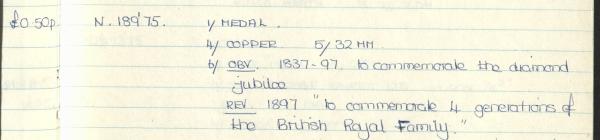 £0.50p. N. 189'75. 1/ MEDAL.
4/ COPPER 5/ 32 MM.
6/ OBV. 1837-97. to commemorate the diamond
jubilee
REV. 1897 "to commemorate 4 generations of
the British Royal Family."